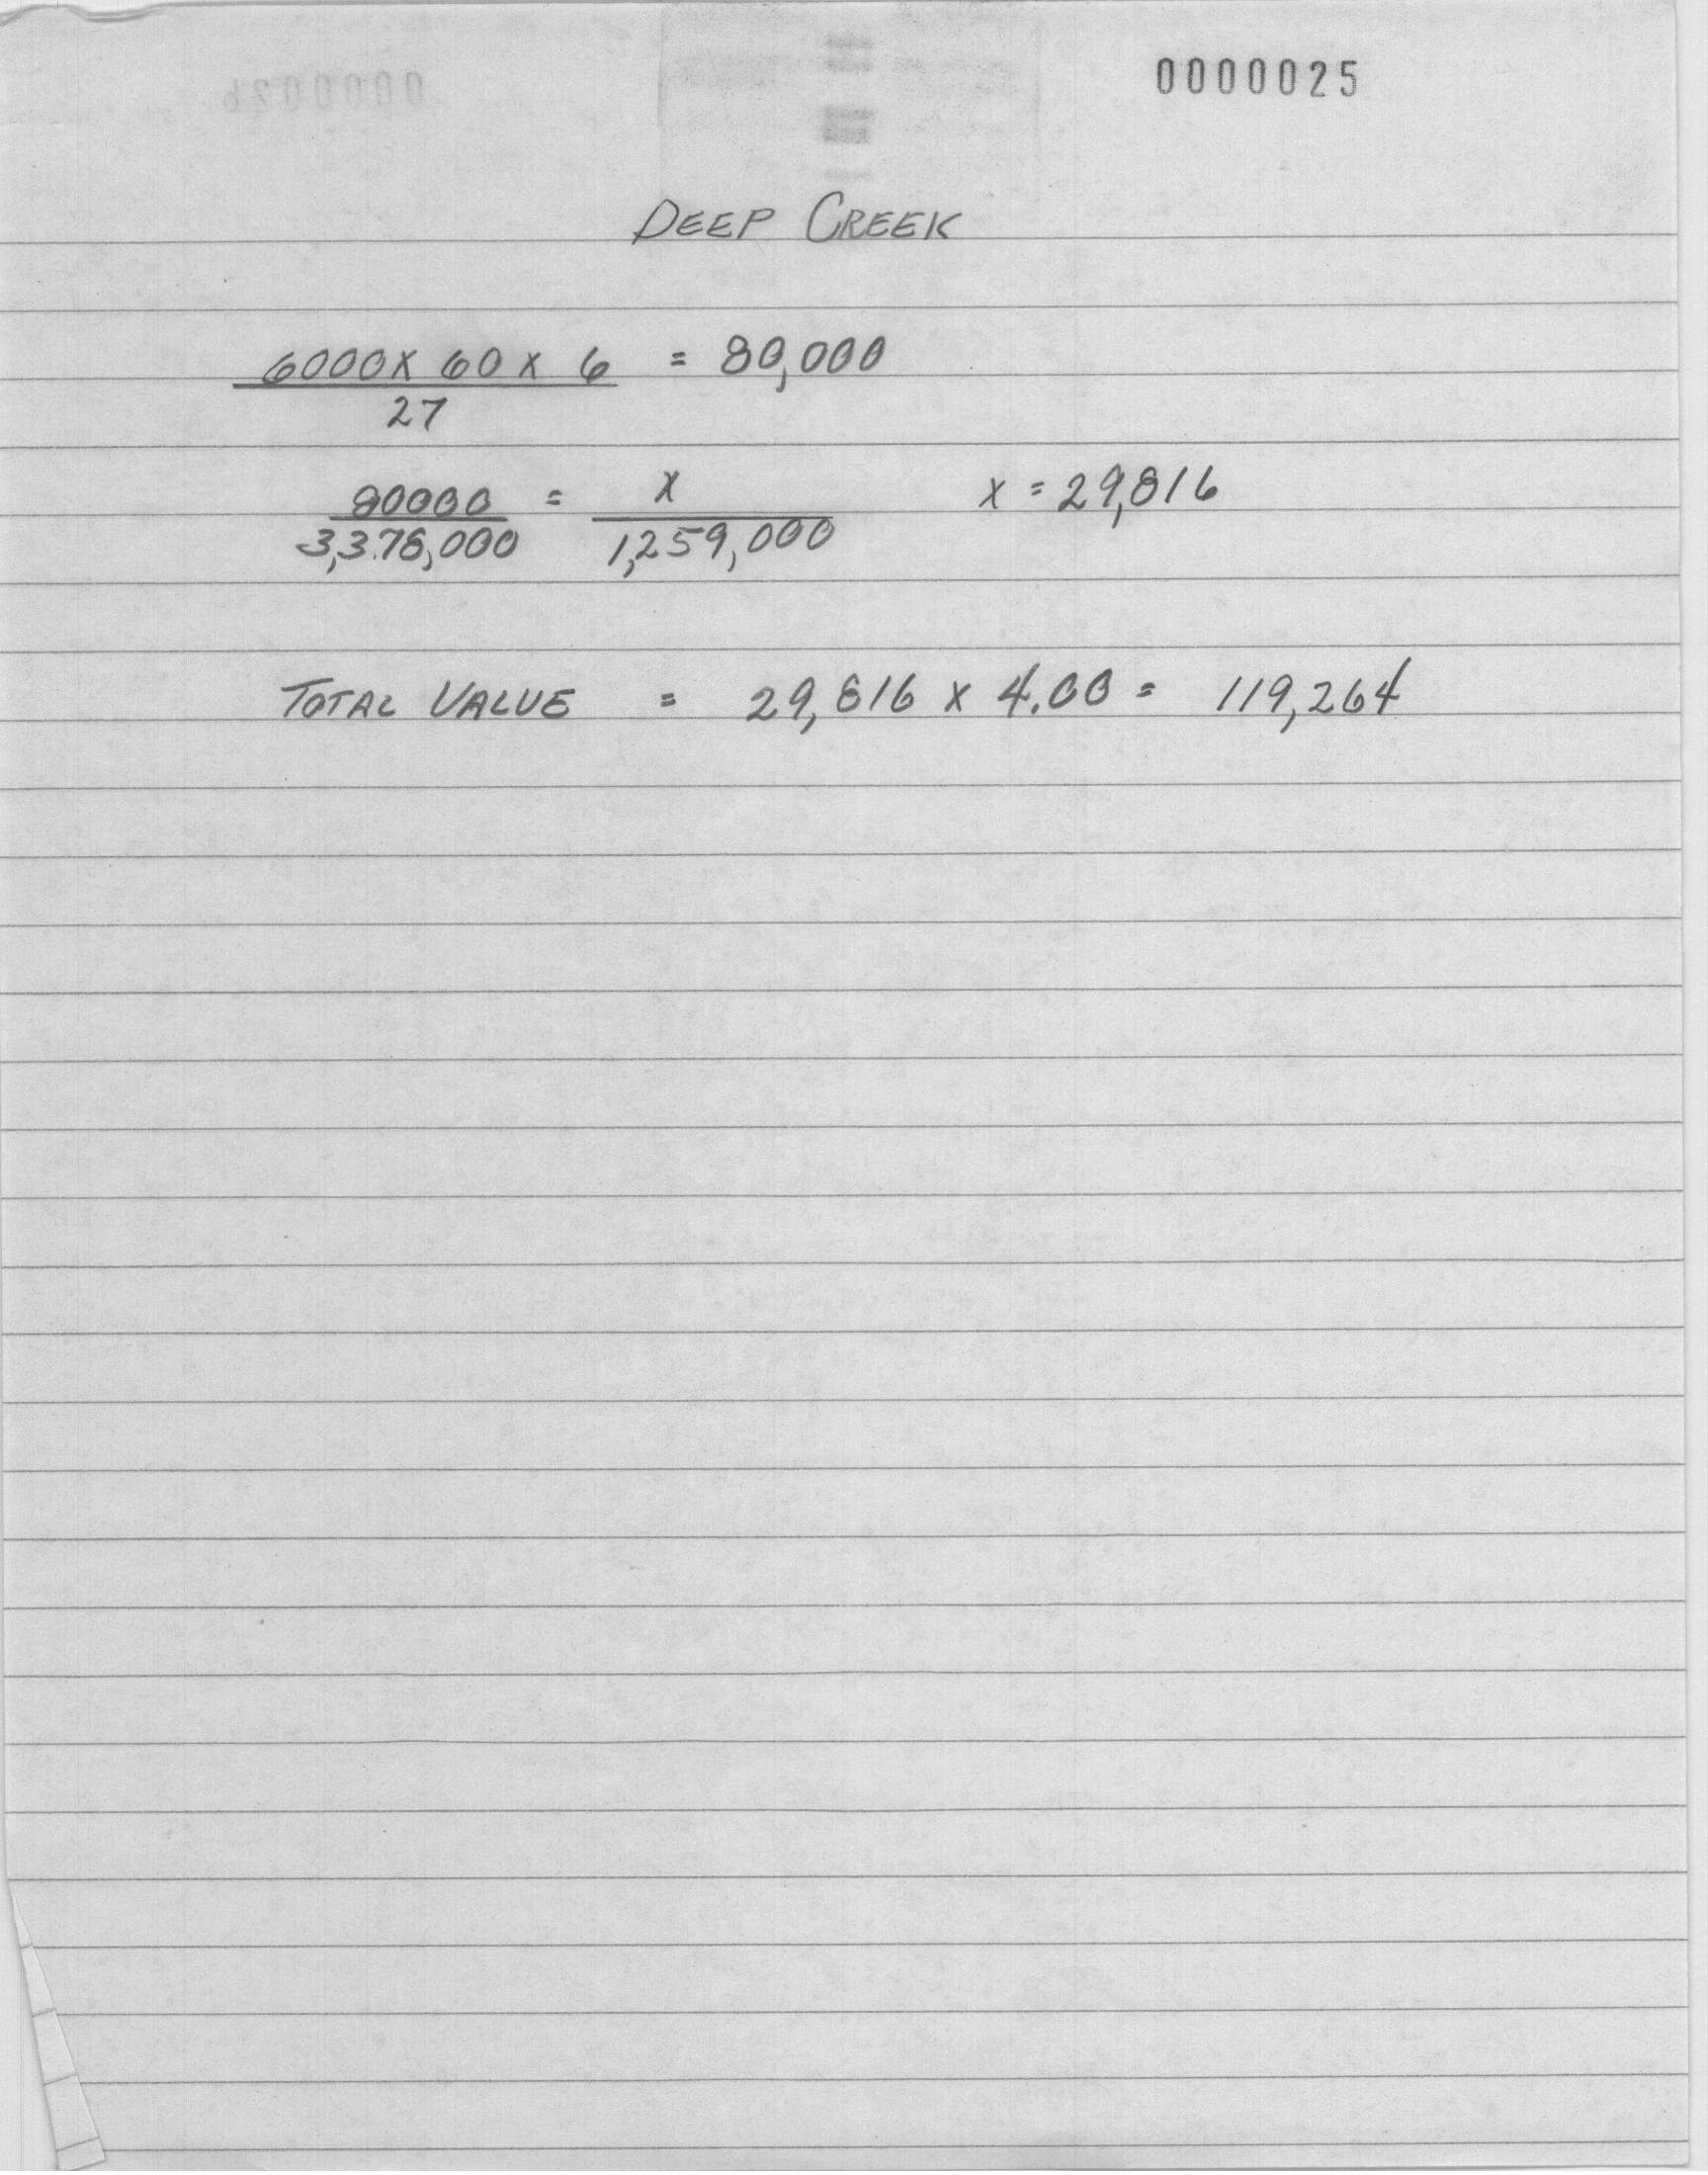 0000025
DEEP CREEK
6000 x 60 x 6 = 80,000
27
80000 = x x = 29,816
3,378,000 1,259,000
TOTAL VALUE = 29,816 x 4.00 = 119,264